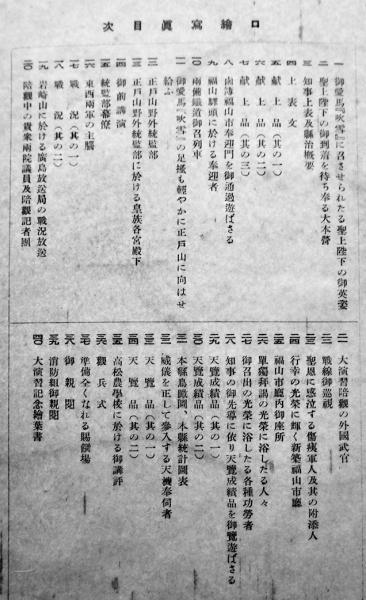 口繪寫眞目次
一 御愛馬『吹雪』に召させられたる聖上陛下の御英姿
二 聖上陛下の御到着を待ち奉る大本營
三 知事上表及縣治概要
四 上表文
五 献上品(其の一)
六 献上品(其の二)
七 献上品(其の三)
八 鹵簿福山市奉迎門を御通過遊ばさる
九 福山驛頭に於ける奉迎者
一〇 南備鐵道御召列車
一一 御愛馬『吹雪』の足搔も輕やかに正戸山に向はせ
給ふ
一二 正戸山野外統監部
一三 正戸山野外統監部に於ける皇族各宮殿下
一四 御前講演
一五 統監部幕僚
一六 東西兩軍の主腦
一七 戰況(其の一)
一八 戰況(其の二)
一九 岩崎山に於ける廣島放送局の戰況放送
二〇 陪觀中の貴衆兩院議員及陪觀記者團
二一 大演習陪觀の外國武官
二二 戰線御巡視
二三 聖恩に感泣する傷痍軍人及其の附添人
二四 行幸の光榮に輝く新築福山市廳
二五 福山市廳内御座所
二六 單獨拜謁の光榮に浴したる人々
二七 御召出の光榮に浴した各種功勞者
二八 知事の御先導に依り天覽成績品を御覽遊ばさる
二九 天覽成績品(其の一)
三〇 天覽成績品(其の二)
三一 本縣鳥瞰圖、本縣統計圖表
三二 威儀を正して參入する天機奉伺者
三三 天覽品(其の一)
三四 天覽品(其の二)
三五 高松農學校に於ける御講評
三六 觀兵式
三七 準備全くなれる賜饌場
三八 御親閲
三九 消防組御親閲
四〇 大演習記念繪葉書